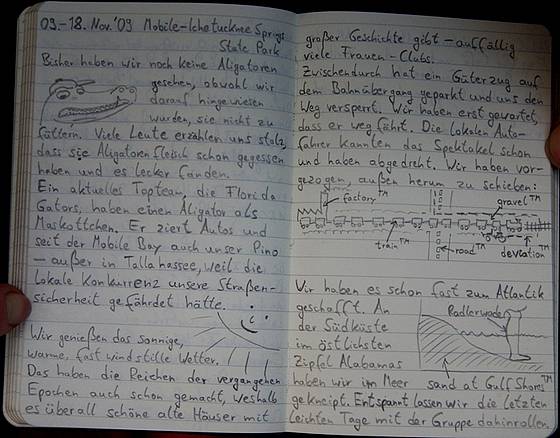 09.-18. Nov. '09 Mobile-Ichetucknee Springs
State Park
Bisher haben wir noch keine Aligatoren
gesehen, obwohl wir
darauf hingewiesen
wurden, sie nicht zu
füttern. Viele Leute erzählen uns stolz,
dass sie Aligatorenfleisch schon gegessen
haben und es lecker fanden.
Ein aktuelles Topteam, die Florida
Gators, haben einen Aligator als
Maskottchen. Er ziert Autos und
seit der Mobile Bay auch unser Pino
– außer in Tallahassee, weil die
lokale Konkurrenz unsere Straßen-
sicherheit gefährdet hätte.
Wir genießen das sonnige,
warme, fast windstille Wetter.
Das haben die Reichen der vergangenen
Epochen auch schon gemacht, weshalb
es überall schöne alte Häuser mit
großer Geschichte gibt – auffällig
viele Frauen-Clubs.
Zwischendurch hat ein Güterzug auf
dem Bahnübergang geparkt und uns den
Weg versperrt. Wir haben erst gewartet,
dass er weg fährt. Die lokalen Auto-
fahrer kannten das Spektakel schon
und haben abgedreht. Wir haben vor-
gezogen, außen herum zu schieben:
factory™
gravel™
train™
road™
deviation™
Wir haben es schon fast zum Atlantik
geschafft. An
der Südküste
im östlichsten
Zipfel Alabamas
haben wir im Meer
gekneipt. Entspannt lassen wir die letzten
leichten Tage mit der Gruppe dahinrollen.
Radlerwade
sand at Gulf Shores™